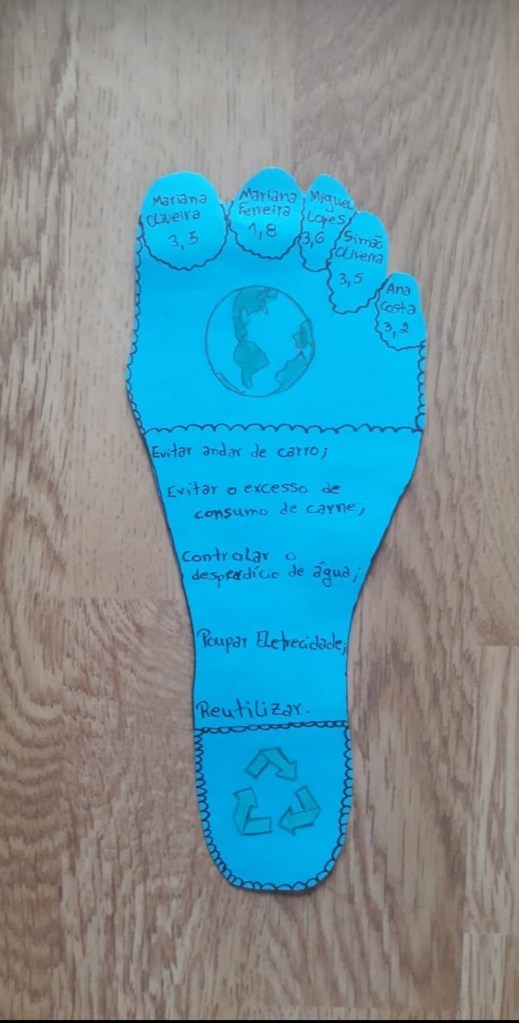 Mariana
Oliveira
3,5
Mariana
Ferreira
1,8
Miguel
Lopes
3,6
Simão
Oliveira
3,5
Ana
Costa
3,2
Evitar andar de carro;
Evitar o excesso de
consumo de carne,
Controlar o
desperdício de água;
Poupar Eletrecidade;
Reutilizar.